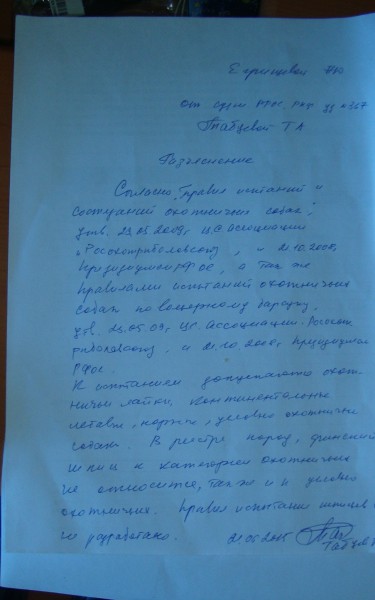 Егринцевой НЮ
от судьи РФОС РКФ уд №367
Табцевой Т А
Разъяснение
Согласно, "Правил испытаний и
состязаний охотничьих собак",
утв. 29.05.2009г ЦС Ассоциации
"Росохотрыболовсоюз", и 21.10.2008г
Президиумом РФОС, а так же
правилами испытаний охотничьих
собак по вольерному барсуку,
утв. 29.05.09г ЦС Ассоциации
и 21.10.2008г Президиумом
РФОС.
К испытаниям допускаются охот-
ничьи лайки, континентальные
легавые, норные, условно охотничьи
собаки. В реестре пород, финский
шпиц к категории охотничьих
не относится, так же и к условно
охотничьим. Правил испытаний шпицев
не разработано. 21 05 2015
Табцева